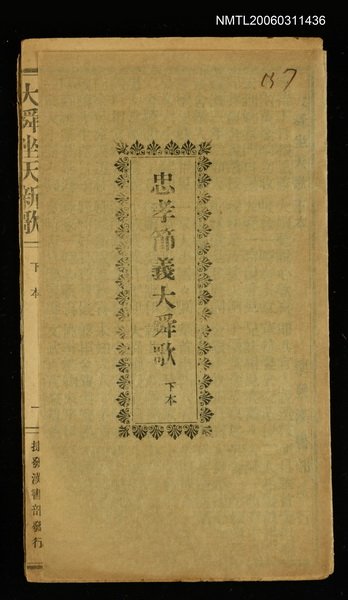 NMTL20060311436
157
忠孝節義大舜歌 下本
大舜坐天新歌 下本
一
捷發漢書部發行